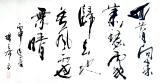 回首向來
蕭瑟處
歸去也
無風雨也
無晴